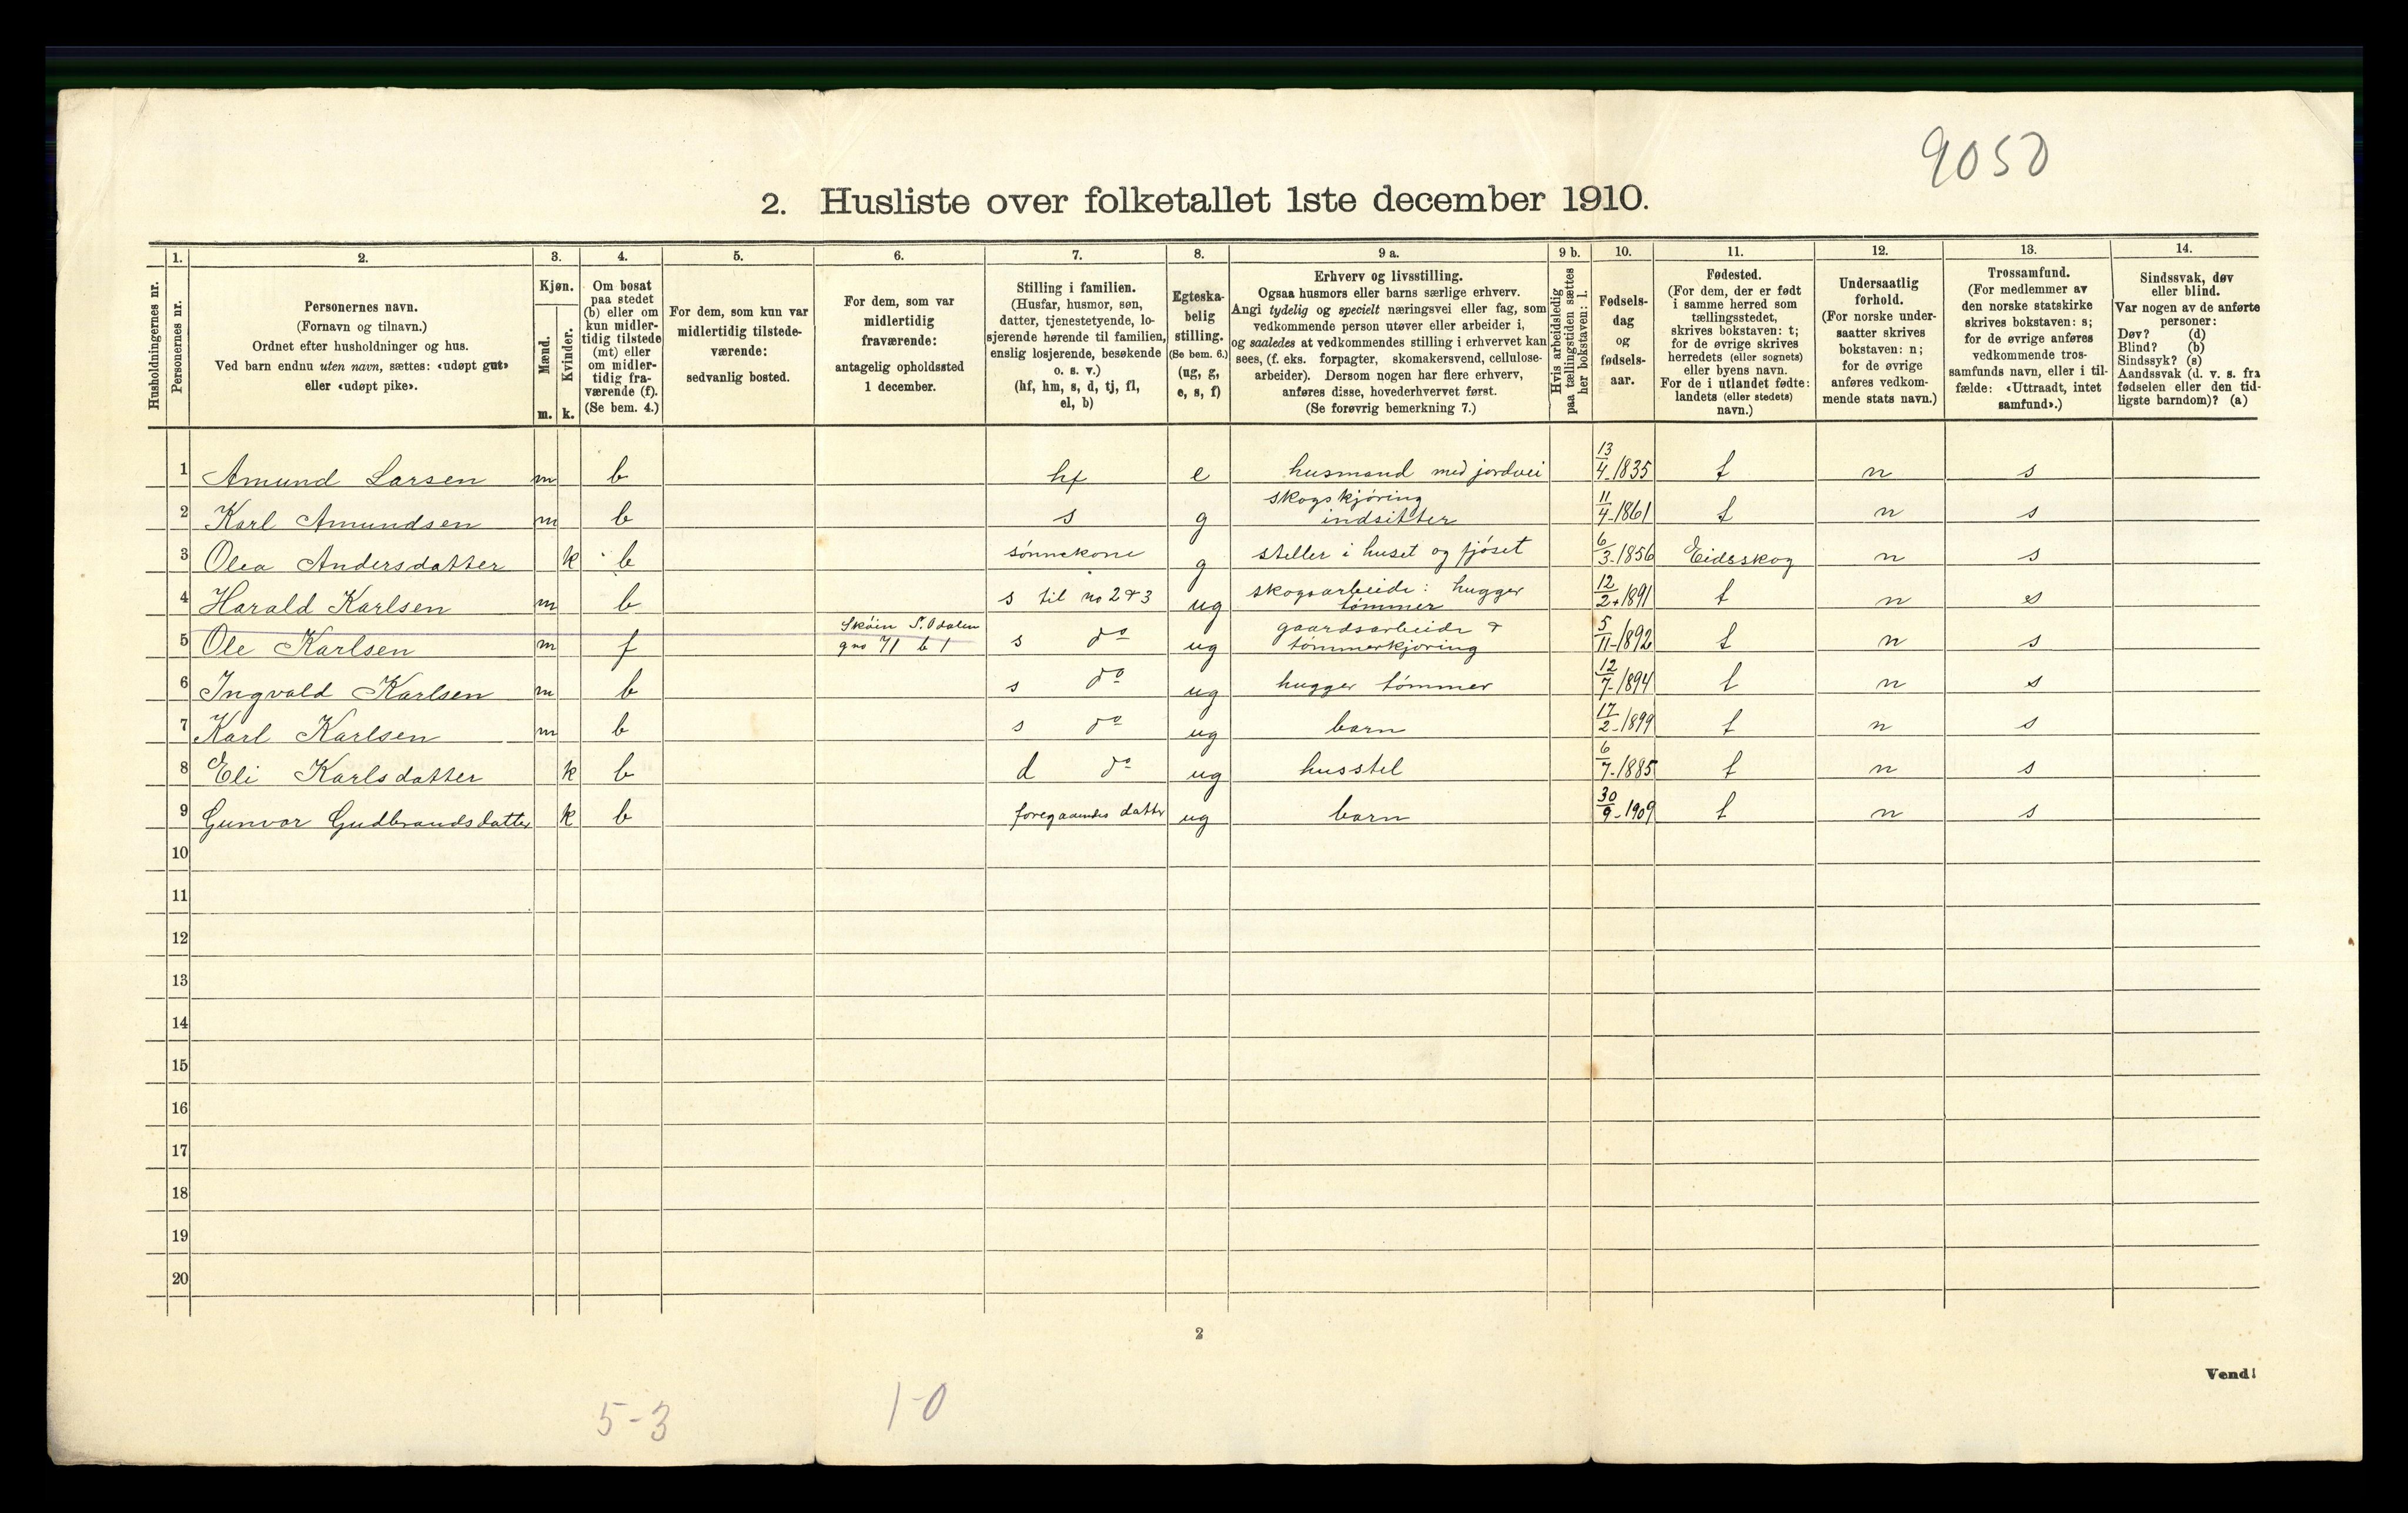 9050
2. Husliste over folketallet 1ste december 1910.
Husholdningernes nr.
1.
Personernes nr.
2.
Personernes navn.
(Fornavn og tilnavn.)
Ordnet efter husholdninger og hus.
Ved barn endnu uten navn, sættes: «udøpt gut»
eller «udøpt pike».
3.
Kjøn.
Mænd.
m.
Kvinder.
k.
4.
Om bosat
paa stedet
(b) eller om
kun midler-
tidig tilstede
(mt) eller
om midler-
tidig fra-
værende (f).
(Se bem. 4.)
5.
For dem, som kun var
midlertidig tilstede-
værende:
sedvanlig bosted.
6.
For dem, som var
midlertidig
fraværende:
antagelig opholdssted
1 december.
7.
Stilling i familien.
(Husfar, husmor, søn,
datter, tjenestetyende, lo-
sjerende hørende til familien,
enslig losjerende, besøkende
o. s. v.)
(hf, hm, s, d, tj, fl,
el, b)
8.
Egteska-
belig
stilling.
(Se bem. 6.)
(ug, g,
e, s, f)
9 a.
Erhverv og livsstilling.
Ogsaa husmors eller barns særlige erhverv.
Angi tydelig og specielt næringsvei eller fag, som
vedkommende person utøver eller arbeider i,
og saaledes at vedkommendes stilling i erhvervet kan
sees, (f. eks. forpagter, skomakersvend, cellulose-
arbeider). Dersom nogen har flere erhverv,
anføres disse, hovederhvervet først.
(Se forøvrig bemerkning 7.)
9 b.
Hvis arbeidsledig
paa tællingstiden sættes
her bokstaven: l.
10.
Fødsels-
dag
og
fødsels-
aar.
11.
Fødested.
(For dem, der er født
i samme herred som
tællingsstedet,
skrives bokstaven: t;
for de øvrige skrives
herredets (eller sognets)
eller byens navn.
For de i utlandet fødte:
landets (eller stedets)
navn.)
12.
Undersaatlig
forhold.
(For norske under-
saatter skrives
bokstaven: n;
for de øvrige
anføres vedkom-
mende stats navn.)
13.
Trossamfund.
(For medlemmer av
den norske statskirke
skrives bokstaven: s;
for de øvrige anføres
vedkommende tros-
samfunds navn, eller i til-
fælde: «Uttraadt, intet
samfund».)
14.
Sindssvak, døv
eller blind.
Var nogen av de anførte
personer:
Døv? (d)
Blind? (b)
Sindssyk? (s)
Aandssvak (d. v. s. fra
fødselen eller den tid-
ligste barndom)? (a)
1 Amund Larsen m b hf e husmand med jordvei 13/4-1835 t n s
2 Karl Amundsen m b s g skogskjøring indsitter 11/4-1861 t n s
3 Olea Andersdatter k b sønnekone g steller i huset og fjøset 6/3-1856 Eidsskog n s
4 Harald Karlsen m b s til no 2 & 3 ug skogsarbeide: hugger tømmer 12/2-1891 t n s
5 Ole Karlsen m f Skøien S. Odalen gno 71 b 1 s do ug gaardsarbeide & tømmerkjøring 5/11-1892 t n s
6 Ingvald Karlsen m b s do ug hugger tømmer 12/7-1894 t n s
7 Karl Karlsen m b s do ug barn 17/2-1899 t n s
8 Eli Karlsdatter k b d do ug husstel 6/7-1885 t n s
9 Gunvor Gudbrandsdatter k b foregaaendes datter ug barn 30/9-1909 t n s
10
11
12
13
14
15
16
17
18
19
20
2
Vend!
5-3
1-0